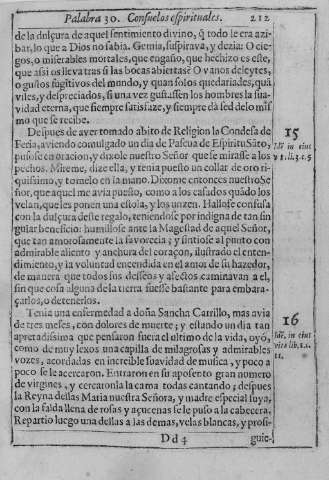 Palabra 30. Consuelos espirituales. 212
de la dulçura de aquel sentimiento divino, q̃ todo le era azi-
bar, lo que a Dios no sabia. Gemia, suspirava, y dezia: O cie-
gos, o miserables mortales, que engaño, que hechizo es este,
que assi os lleva tras si las bocas abiertas? O vanos deleytes,
o gustos fugitivos del mundo, y quan solos quedariades, quã
viles, y despreciados, si una vez gustassen los hombres la sua-
vidad eterna, que siempre satisfaze, y siempre dà sed de lo mis
mo que se recibe.
Despues de aver tomado abito de Religion la Condesa de
Feria, aviendo comulgado un dia de Pascua de Espiritu Sãto,
pusose en oracion, y dixole nuestro Señor que se mirasse a los
pechos. Mireme, dize ella, y tenia puesto un collar de oro ri-
quissimo, y tornelo en la mano. Dixome entonces nuestro Se
ñor, que aquel me avia puesto, como a los casados quãdo los
velan, que les ponen una estola, y los unzen. Hallose confusa
con la dulçura deste regalo, teniendose por indigna de tan sin
gular beneficio: humillose ante la Magestad de aquel Señor,
que tan amorosamente la favorecia; y sintiose al punto con
admirable aliento y anchura del coraçon, ilustrado el enten-
dimiento, y la voluntad encendida en el amor de su hazedor,
de manera que todos sus desseos y afectos caminavan a el,
sin que cosa alguna de la tierra fuesse bastante para embara-
çarlos, o detenerlos.
Tenia una enfermedad a doña Sancha Carrillo, mas avia
de tres meses, con dolores de muerte; y estando un dia tan
apretadissima que pensaron fuera el ultimo de la vida, oyó,
como de muy lexos una capilla de milagrosas y admirables
vozes, acordadas en increible suavidad de musica, y poco a
poco se le acercaron. Entraron en su aposento gran numero
de virgines, y cercaronla la cama todas cantando; despues
la Reyna dellas Maria nuestra Señora, y madre especial suya,
con la falda llena de rosas y açucenas se le puso a la cabecera.
Repartio luego una dellas a las demas, velas blancas, y prosi-
Dd4
guie-
15
Idẽ in eius
v t. li. 3. c. 5
16
Idẽ, in eius
vita lib. 2. c.
11.